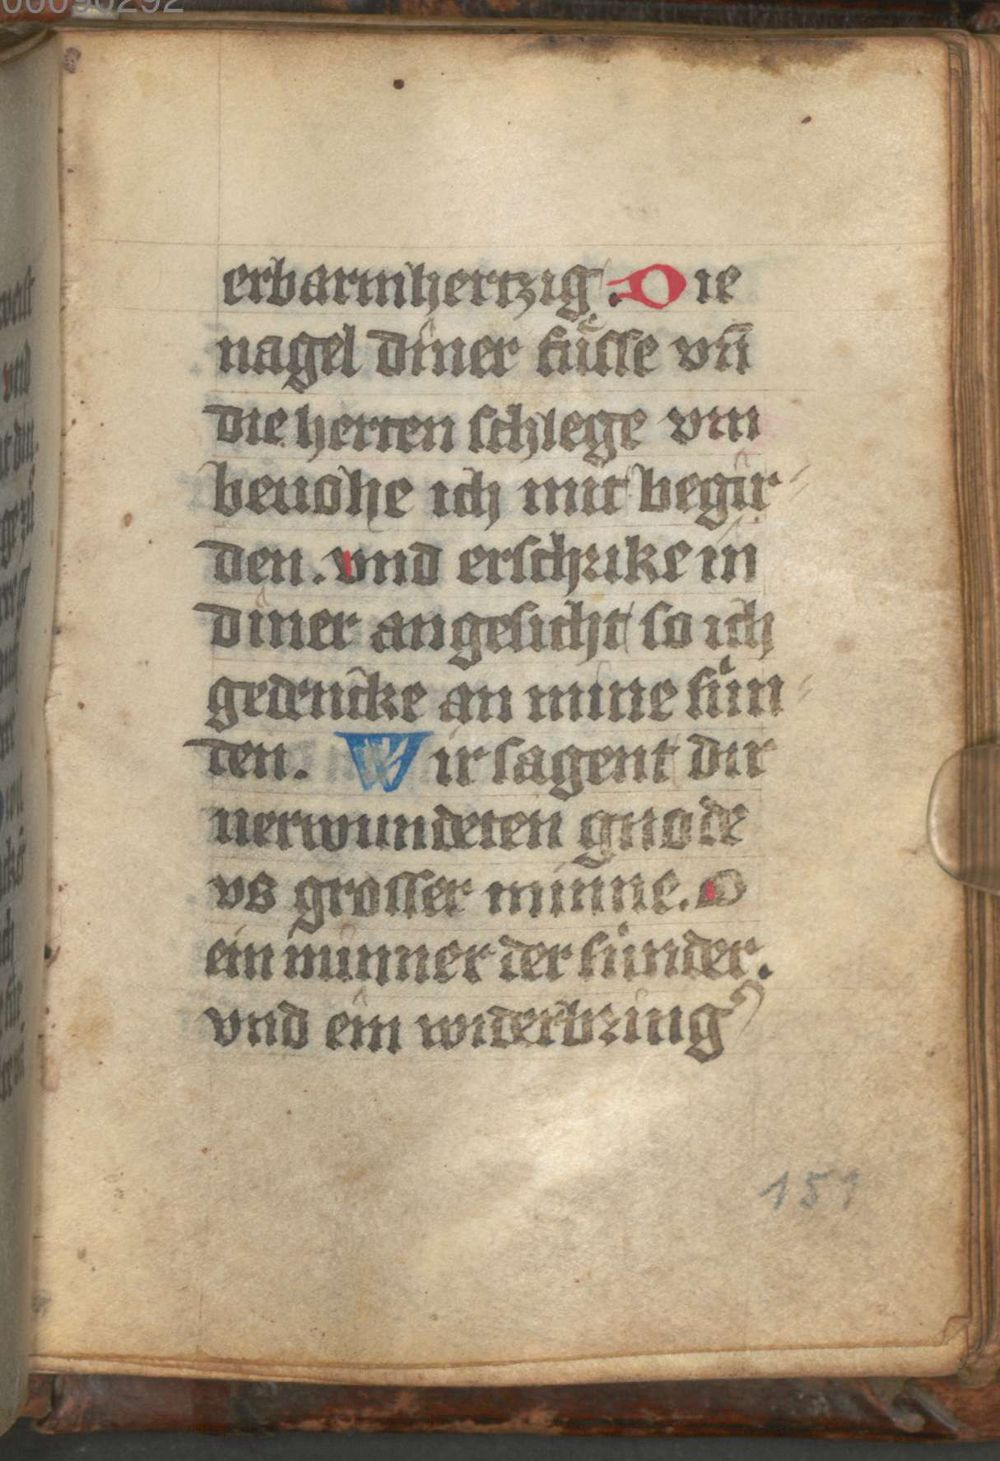 erbarmhertzig. Die
nagel diner fuͤsse vn̄
die herten schlege vm
bevohe ich mit begir-
den. vnd erschrike in
diner angesicht so ich
gedencke an mine sun-
den. Wir sagent dir
uerwundeten gnode
vs grosser minne. O
ein minner der sunder.
vnd ein widerbring᾽
151
00090292